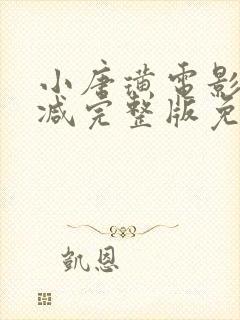 小唐璜电影
减完整版免
凯恩